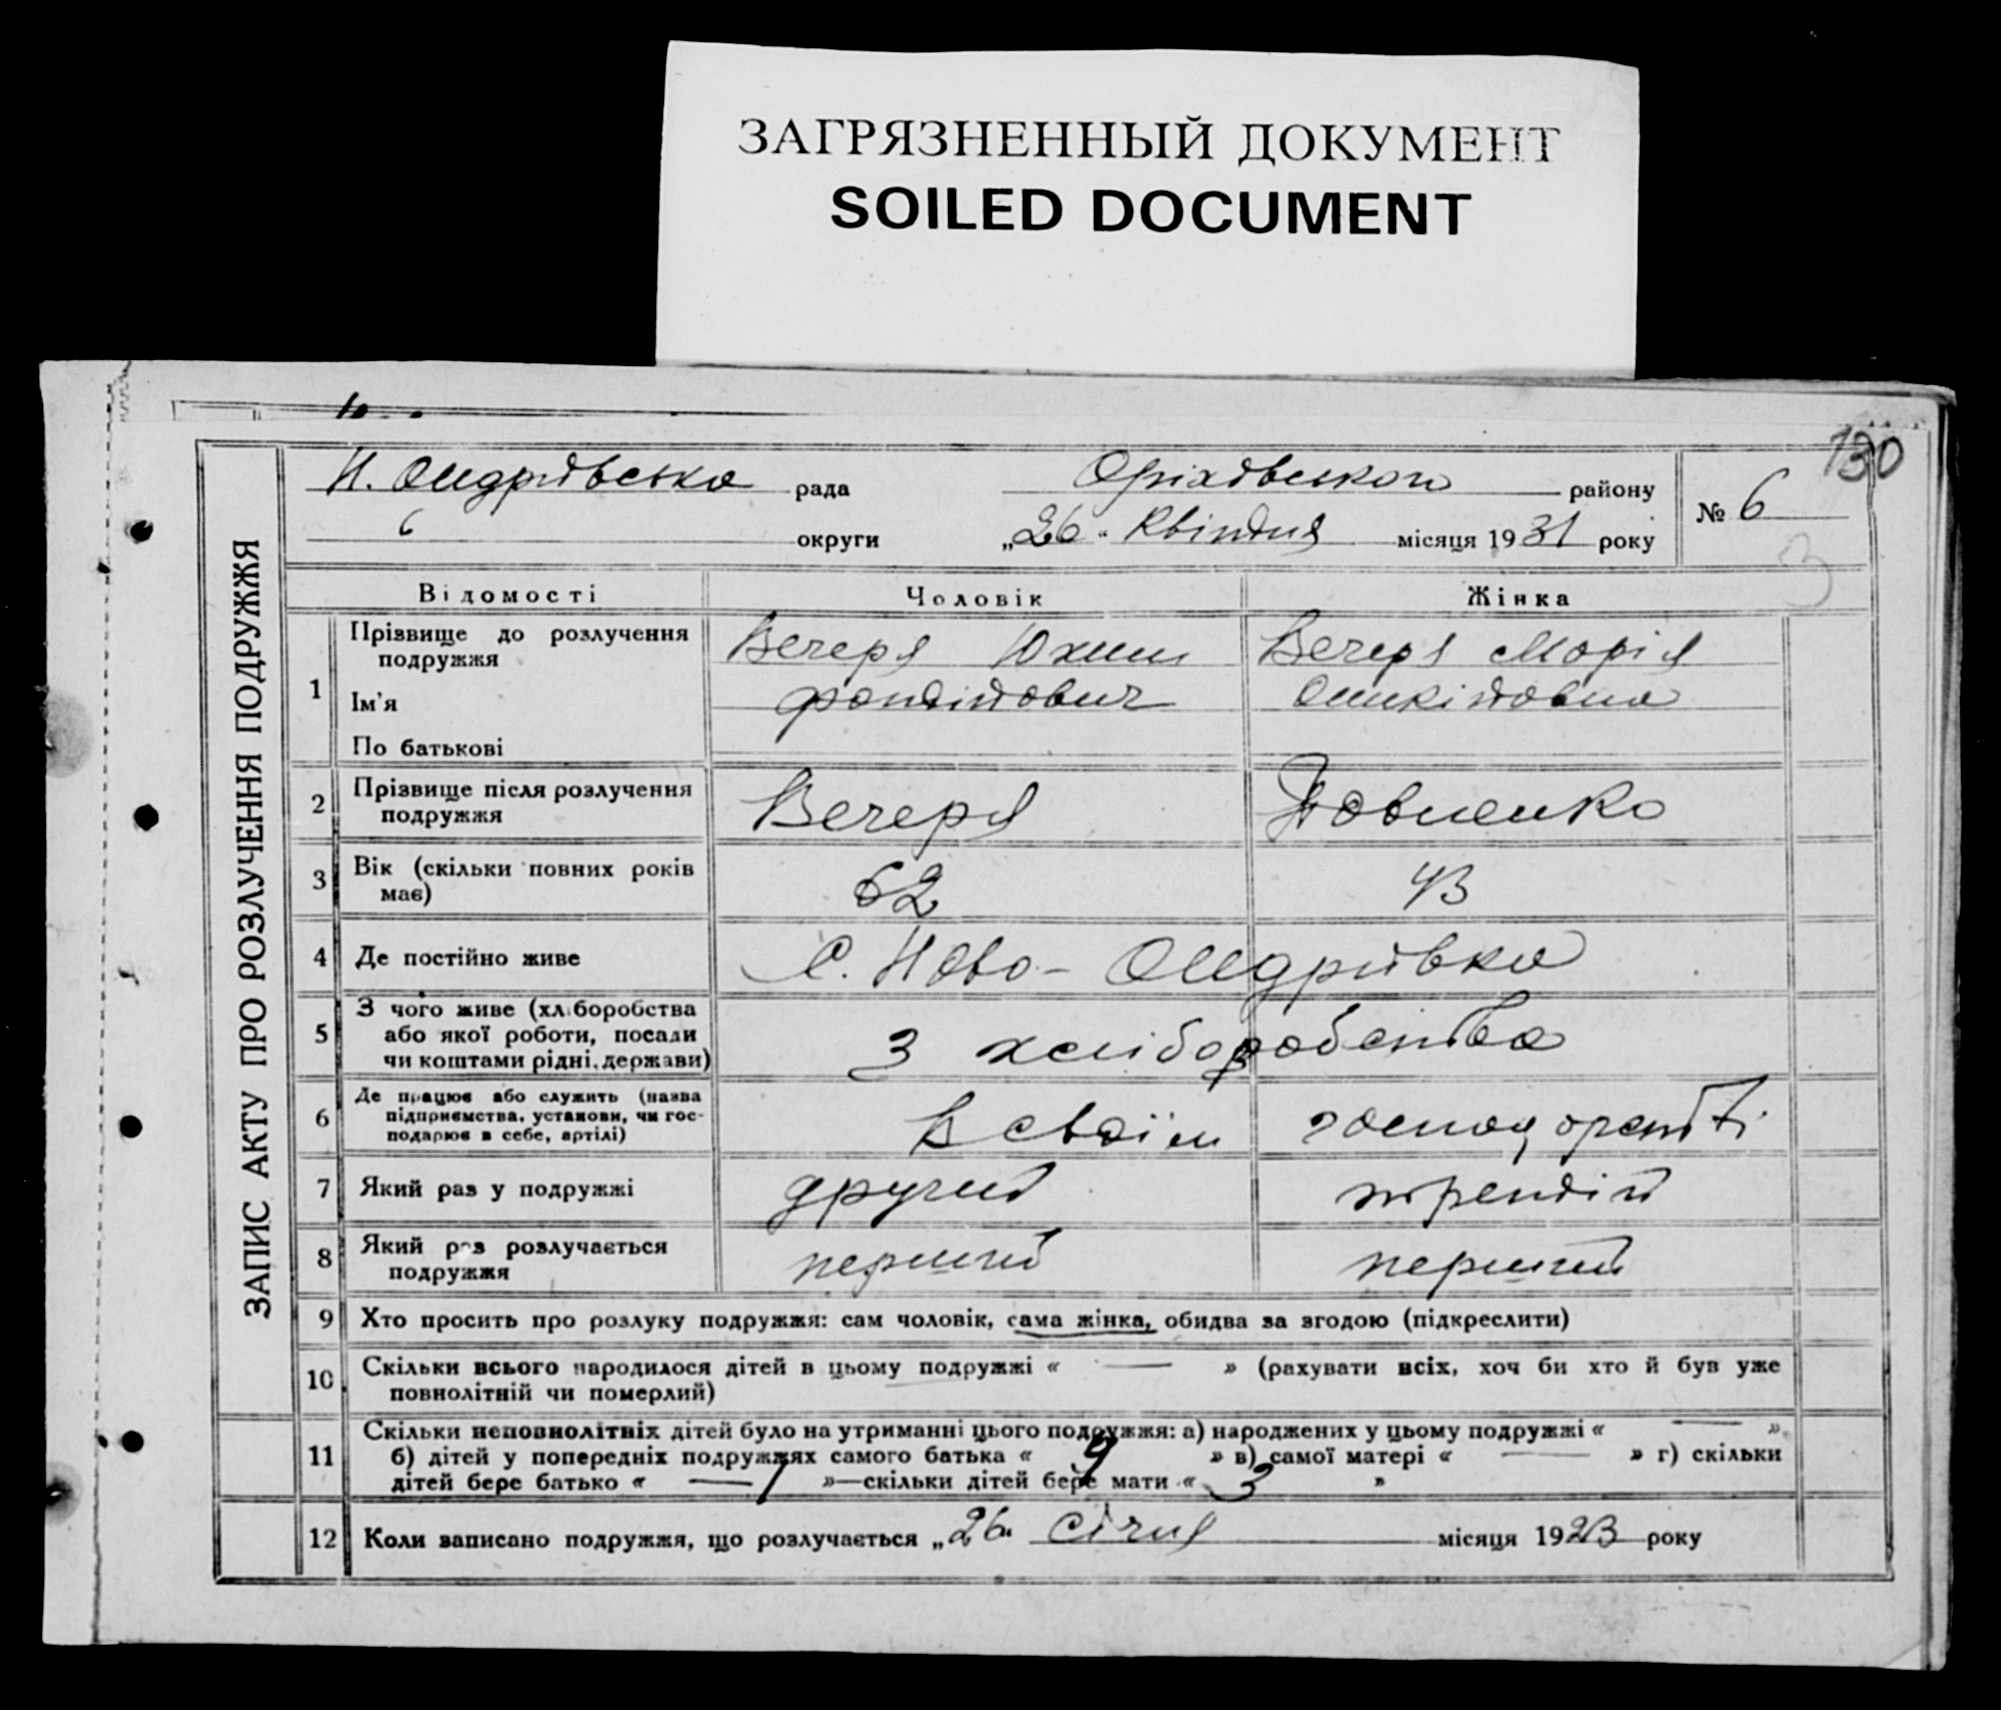 ЗАГРЯЗНЕННЫЙ ДОКУМЕНТ
SOILED DOCUMENT
130
Н. Андрівська рада Оріхівського району № 6
округи „26“ Квітня місяця 1931 року
3
ЗАПИС АКТУ ПРО РОЗЛУЧЕННЯ ПОДРУЖЖЯ
Відомості Чоловік Жінка
1 Прізвище до розлучення подружжя Вечеря Юхим Вечеря Марія
Ім'я
По батькові
2 Прізвище після розлучення подружжя Вечеря
3 Вік (скільки повних років має) 62 43
4 Де постійно живе С. Ново-Андрівка
5 З чого живе (хліборобства або якої роботи, посади чи коштами рідні, держави) З хліборобства
6 Де працює або служить (назва підприємства, установи, чи господарює в себе, артілі) В своїм господарстві
7 Який раз у подружжі другий третій
8 Який раз розлучається подружжя перший перший
9 Хто просить про розлуку подружжя: сам чоловік, сама жінка, обидва за згодою (підкреслити)
10 Скільки всього народилося дітей в цьому подружжі « — » (рахувати всіх, хоч би хто й був уже
повнолітній чи померлий)
11 Скільки неповнолітніх дітей було на утриманні цього подружжя: а) народжених у цьому подружжі « — »
б) дітей у попередніх подружжях самого батька « » в) самої матері « — » г) скільки
дітей бере батько « — 1 »—скільки дітей бере мати « 3 »
12 Коли записано подружжя, що розлучається „26“ Січня місяця 1923 року